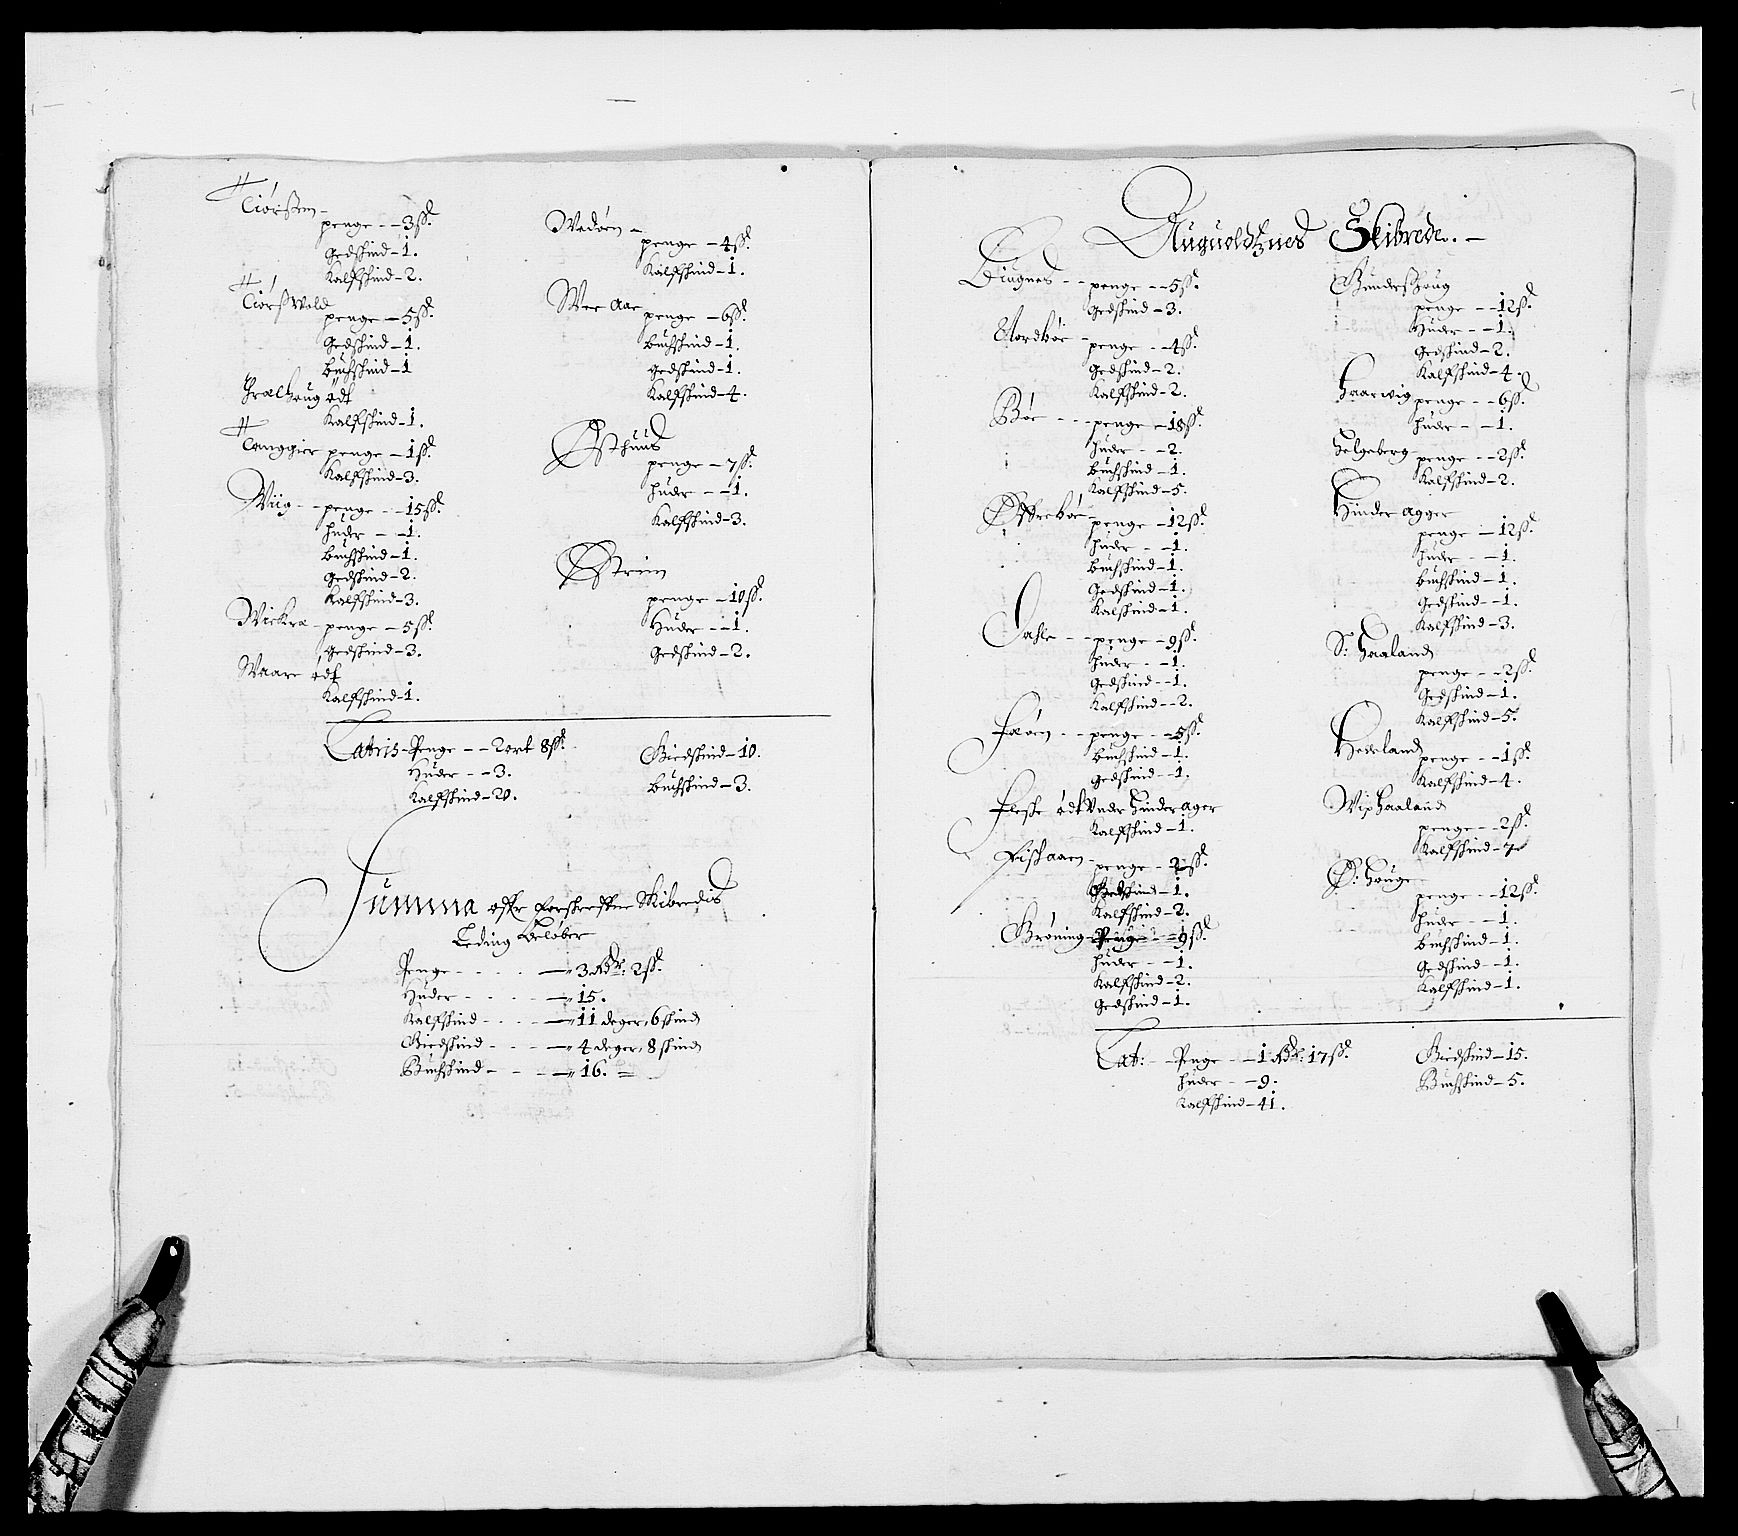 Tiørsten –
penge – – 3 ſß.
Gedskind – 1.
Kalfskind – 2.
Tiørswold
penge – 5 ſß.
Gedskind – 1.
buchskind – 1
Trælhoug ødt
Kalfskind – 1.
Tanggier penge – 1 ſß.
Kalfskind – 3.
Wiig – – penge – – 15 ſß.
huder – – 1.
buchskind – 1.
Gedskind – 2.
Kalfskind – 3.
Wickra – penge – 5 ſß.
Gedskind – 3.
Waare ødt
Kalfskind – 1.
Wedøen –
penge – 4 ſß.
Kalfskind – 1.
Wee aae
penge – 6 ſß.
buchskind – 1.
gedskind – 1.
Kalfskind – 4.
Østhuus
penge – 7 ſß.
huder – – 1.
Kalfskind – 3.
Østrim
penge – 10 ſß.
Huder – – 1.
Gedskind – 2.
Lateris – Penge – – 2 ort 8 ſß.
Huder – – 3.
Kalfskind – 20.
Giedskind – 10.
buchskind – 3.
Summa offr forskreffne Skibredis
Leding beløber
Penge – – – – – 3 Rdr: 2 ſß.
Huder – – – – – 15.
Kalfskind – – – – 11 deger, 6 skind
Giedskind – – – – 4 deger, 8 skind
Buchskind – – – – 16. =
Auguoldznes Skibrede. –
Eiugnes – – penge – – 5 ſß.
Gedskind – 3.
Nordbøe –
penge – – 4 ſß.
Gedskind – 2.
Kalfskind – 2.
Bøe – – – penge – 18 ſß.
huder – – 2.
buchskind – 1.
Kalfskind – 5.
Øffrebøe –
penge – 12 ſß.
huder – – 1.
buchskind – 1.
Gedskind – 1.
Kalfskind – 1.
Dahle – – – penge – 9 ſß.
huder – – 1.
Gedskind – – 1.
Kalfskind – – 2.
Fæøen – – penge – – 5 ſß.
buchskind – 1.
gedskind – – 1.
Fleske ødt Under hinderager
Kalfskind – 1.
Fiskaaen –
penge – 2 ſß.
Gedskind – 1.
Kalfskind – 2.
Grøning – Penge – – 9 ſß.
huder – – 1.
Kalfskind – 2.
Gedskind – 1.
Gundershoug
penge – – 12 ſß.
Huder – – 1.
Gedskind – 2.
Kalfskind – 4.
Haarwig penge – – 6 ſß.
huder – – 1.
Helgeberg penge – – 2 ſß.
Kalfskind – 2.
Hinder agger
penge – 12 ſß.
huder – – 1.
buchskind – 1.
Gedskind – – 1.
Kalfskind – 3.
S: Haaland
penge – – 2 ſß.
Gedskind – 1.
Kalfskind – 5.
Heweland
penge – – 1 ſß.
Kalfskind – 4.
Wix haaland
penge – – 2 ſß.
Kalfskind – 7
Ø: Houge
penge – – 12 ſß.
huder – – 1.
buchskind – 1.
Gedskind – – 1.
Kalfskind – 1.
Lat: – – Penge – – 1 Rdr: 17 ſß.
huder – – 9.
Kalfskind – 41.
Giedskind – 15.
Buchskind – 5.